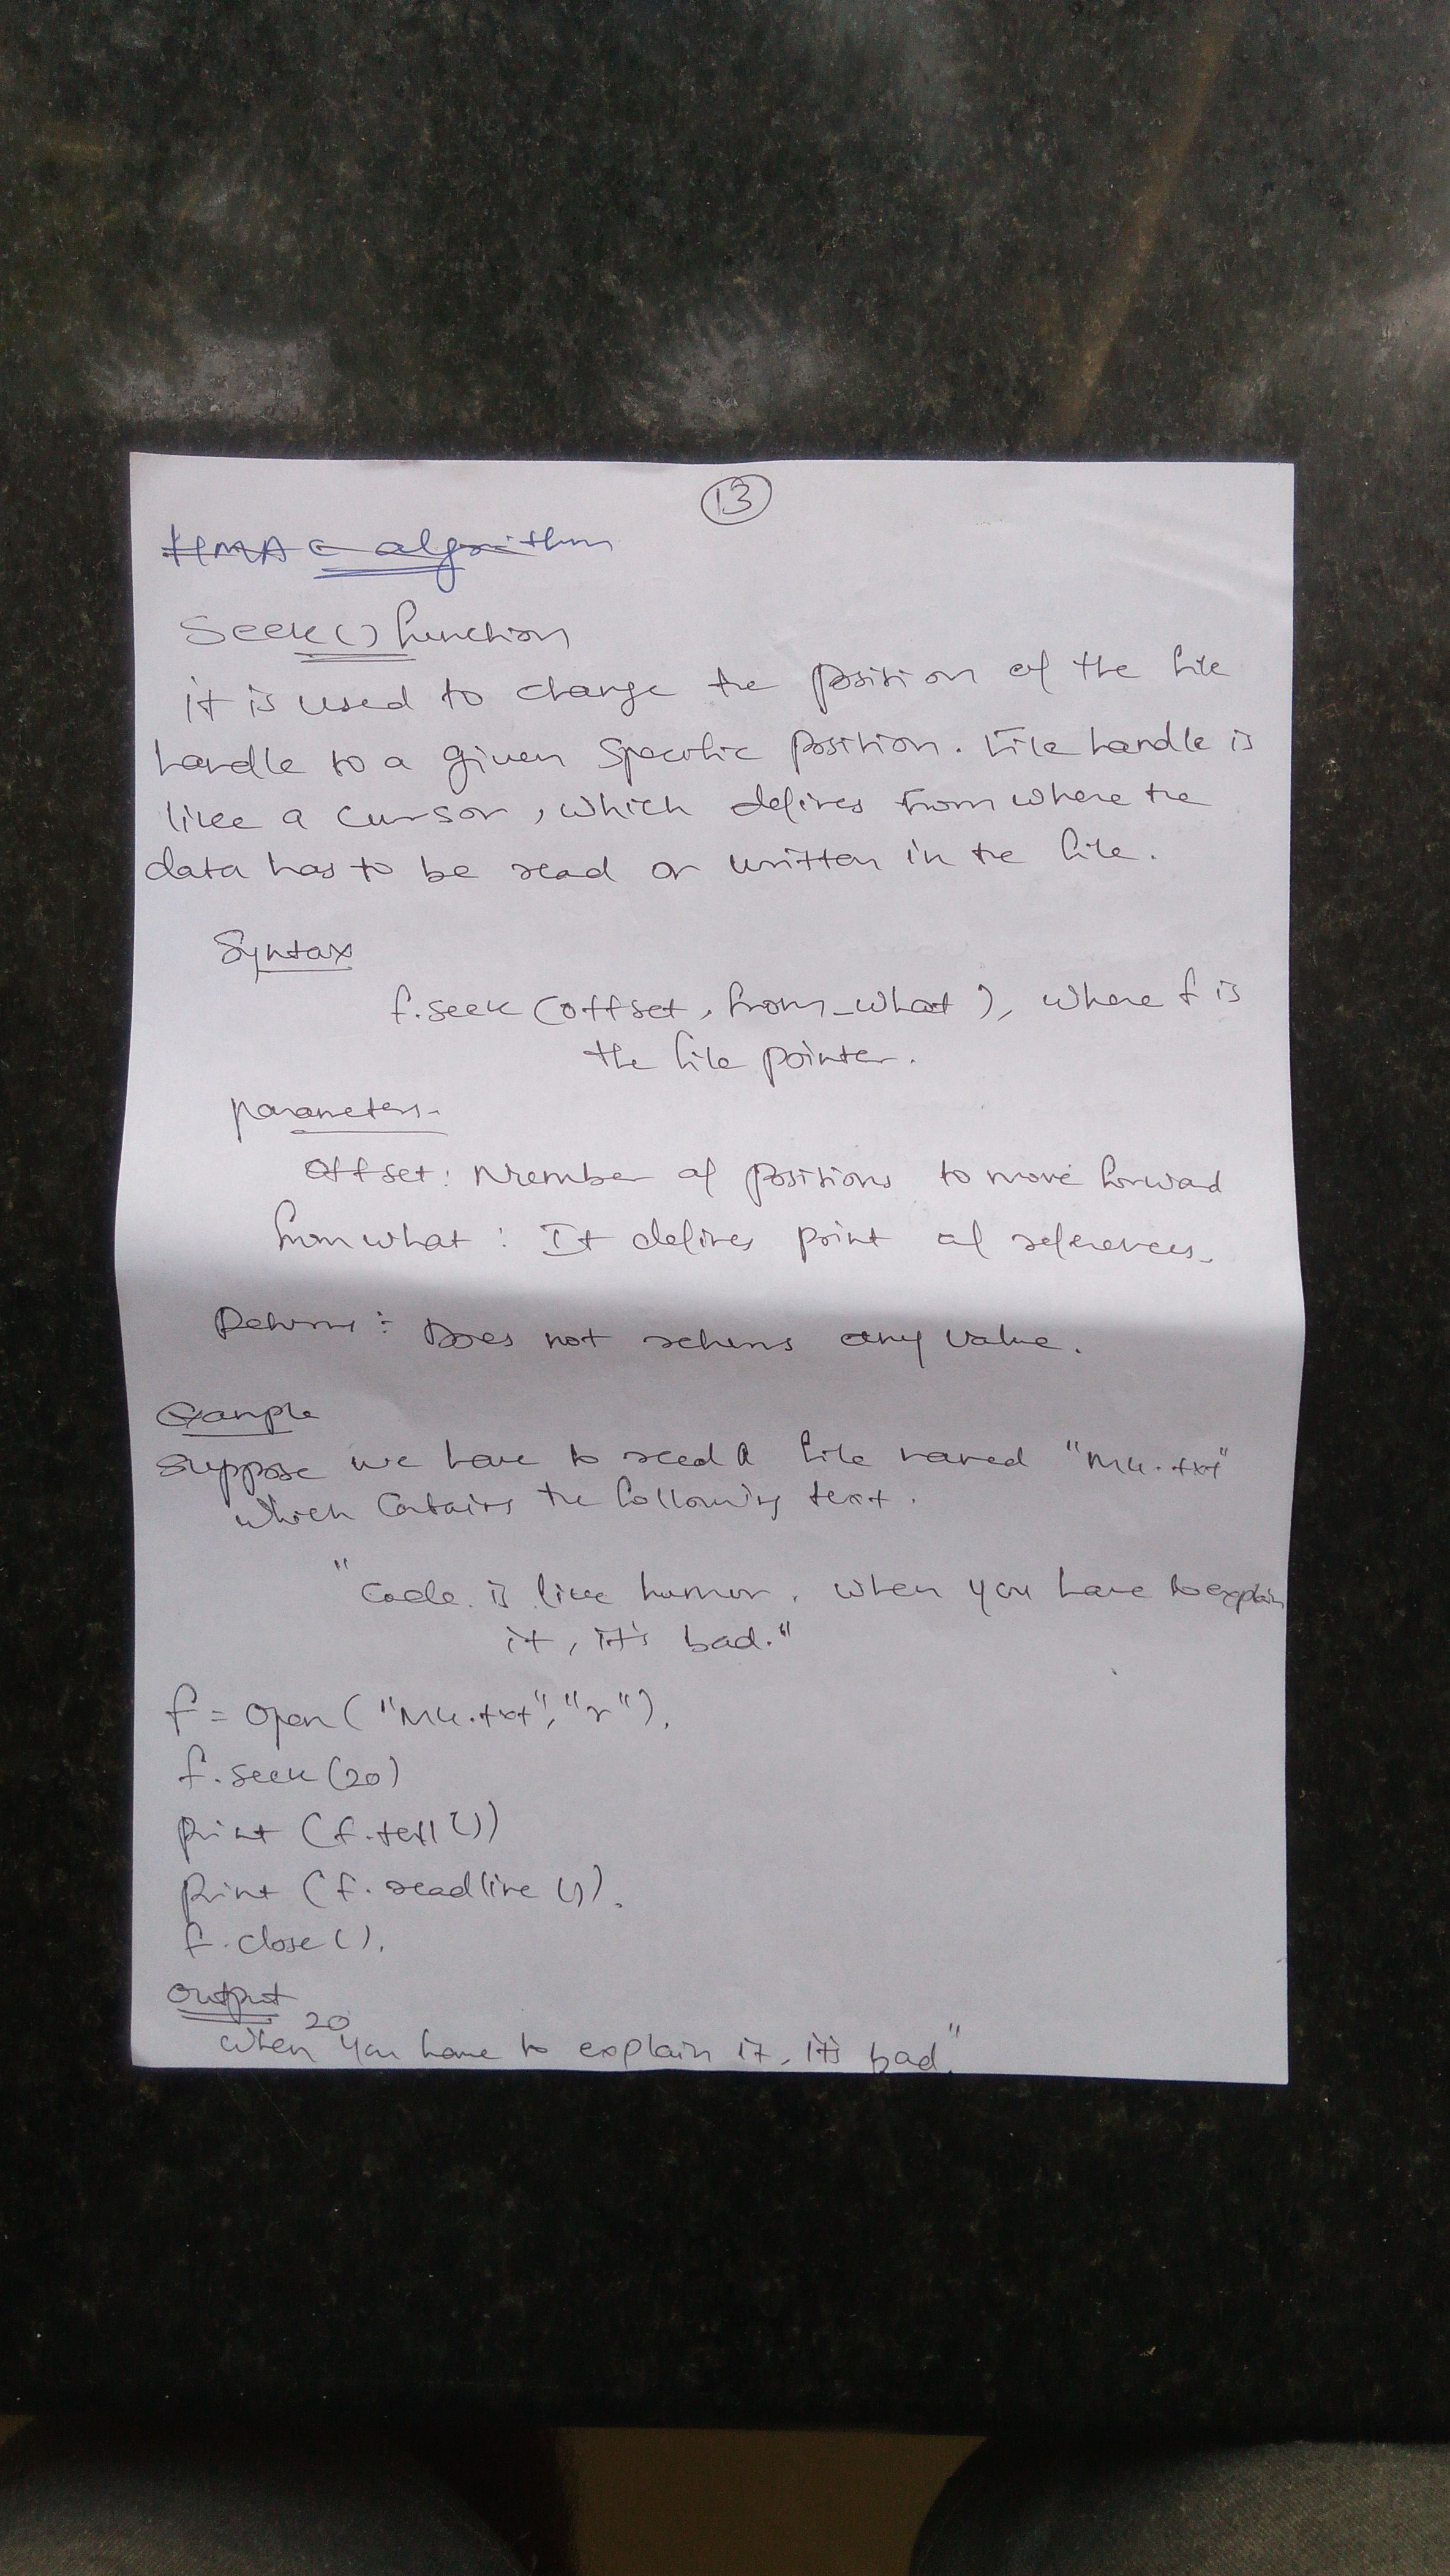 13
HMAC algorithm
Seek() function
it is used to change the position of the file
handle to a given specific position. File handle is
like a cursor, which defines from where the
data has to be read or written in the file.
Syntax
f.seek (offset, from_what), where f is
the file pointer.
parameters-
Offset: Number of positions to move forward
from what : It defines point of references.
Returns : Does not returns any value.
Example
Suppose we have to read a file named "Mk.txt"
which contains the following text.
"Code is like humor. When you have to explain
it, it's bad."
f = open ("Mk.txt", "r").
f.seek (20)
print (f.tell())
print (f.readline ()).
f.close ().
Output
20
When you have to explain it, it's bad."